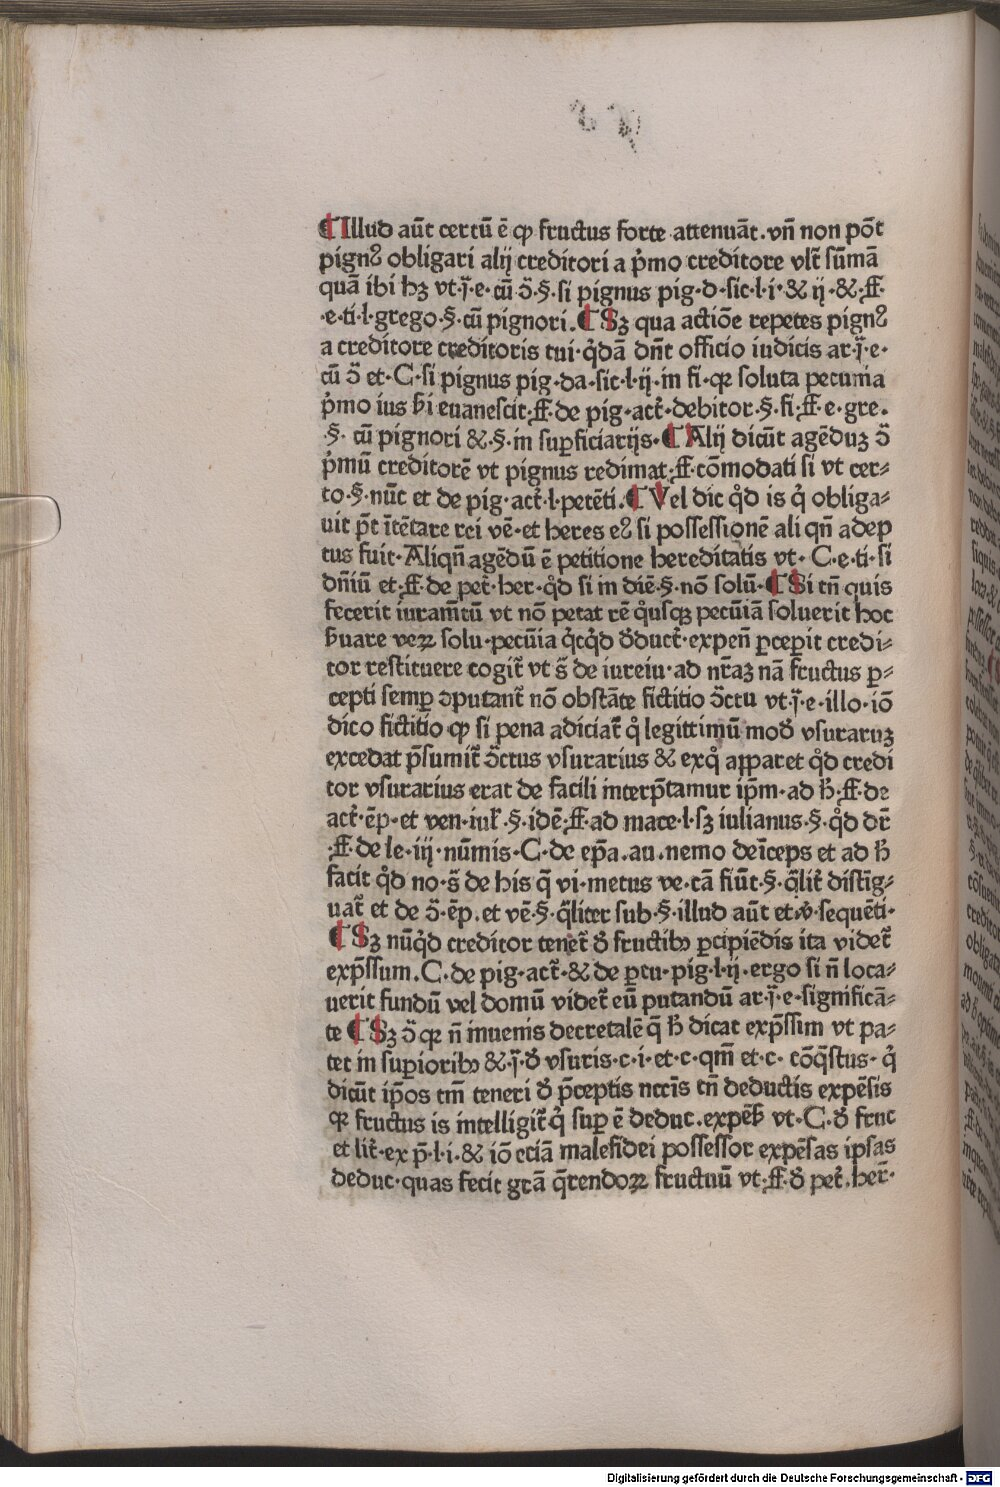 ¶ Illud aūt certū ē ꝙ fructus forte attenuāt. vñ non pōt
pignꝰ obligari alij creditori a pͥmo creditore vlt̄ sūmā
quā ibi hꝫ vt.ȷ̄.e. cū ↄ̄.§. si pignus pig.d.sic.l.i.& ij.&.ff.
.e.ti.l.grego.§. cū pignori. ¶ Sꝫ qua actiōe repetes pignꝰ
a creditore creditoris tui. qͥdā dn̄t officio iudicis ar.ȷ̄.e.
cū ↄ̄ et.C. si pignus pig.da.sic.l.ij.in fi. qꝛ soluta pecunia
pͥmo ius h̄i euanescit.ff.de pig.act̄.debitor.§.fi.ff.e.gre.
.§. cū pignori &.§.in suꝑficiarijs. ¶ Alij dicūt agēduꝫ ↄ̄
pͥmū creditorē vt pignus redimat.ff.cōmodati si vt cer⸗
to.§.nūc et de pig.act̄.l.petēti. ¶ Vel dic qͦd is qͥ obliga⸗
uit p̄t ītētare rei vē.et heres eꝰ si possessionē ali qn̄ adep
tus fuit. Aliqn̄ agēdū ē petitione hereditatis vt. C.e.ti.si
dn̄iū et.ff.de pet̄.her.qͦd si in diē.§.nō solū. ¶ Si tn̄ quis
fecerit iuram̄tū vt nō petat rē qͦusqꝫ pecūiā soluerit hoc
ẜuare veꝝ solu.pecūia qͥcqͦd ꝺ̄duct̄.expen̄ ꝑcepit credi⸗
tor restituere cogit̄ vt s̄ de iureiu.ad nr̄aꝫ nā fructus ꝑ⸗
cepti semꝑ ↄputant̄ nō obstāte fictitio ↄ̄ctu vt.ȷ̄.e.illo.iō
dico fictitio ꝙ si pena adiciat̄ qͦ legittimū moꝺ̄ vsuraruꝫ
excedat p̄sumit̄ ↄ̄ctus vsurarius & exqͦ apparet qͦd credi
tor vsurarius erat de facili interp̄tamur ip̄m.ad h̄.ff.de
act̄.ēp.et ven.iul̄.§.idē.ff.ad mace.l.sꝫ iulianus.§.qͦd dr̄
.ff.de le.iij.nūmis.C.de ep̄a.au.nemo deīceps et ad h̄
facit qͦd no.s̄ de his q̄ vi.metus ve.cā fiūt.§.q̄lit̄ distig⸗
uat̄ et de ↄ̄.ēp.et vē.§.q̄liter sub.§.illud aūt et.v̄.sequēti.
¶ Sꝫ nūqͦd creditor tenet̄ ꝺ̄ fructibꝰ ꝑcipiēdis ita videt̄
exp̄ssum.C.de pig.act̄.& de ꝑtu.pig.l.ij.ergo si n̄ loca⸗
uerit fundū vel domū videt̄ eū putandū ar.ȷ̄.e.significā⸗
te ¶ Sꝫ ↄ̄ qꝛ n̄ inuenis decretalē q̄ h̄ dicat exp̄ssim vt pa⸗
tet in suꝑioribꝰ &.ȷ̄.ꝺ̄ vsuris.c.i.et.c.qm̄ et.c.cōq̄stus.qͥ
dicūt ip̄os tm̄ teneri ꝺ̄ p̄ceptis nccīs tn̄ deductis expēsis
qꝛ fructus is intelligit̄ qͥ suꝑ ē deduc.expēẜ vt.C.ꝺ̄ fruc
et lit̄.ex p̄.l.i.& iō eciā malefidei possessor expēsas ipsas
deduc.quas fecit grā q̄rendoꝝ fructuū vt.ff.ꝺ̄ pet̄.her̄.
Digitalisierung gefördert durch die Deutsche Forschungsgemeinschaft - DFG